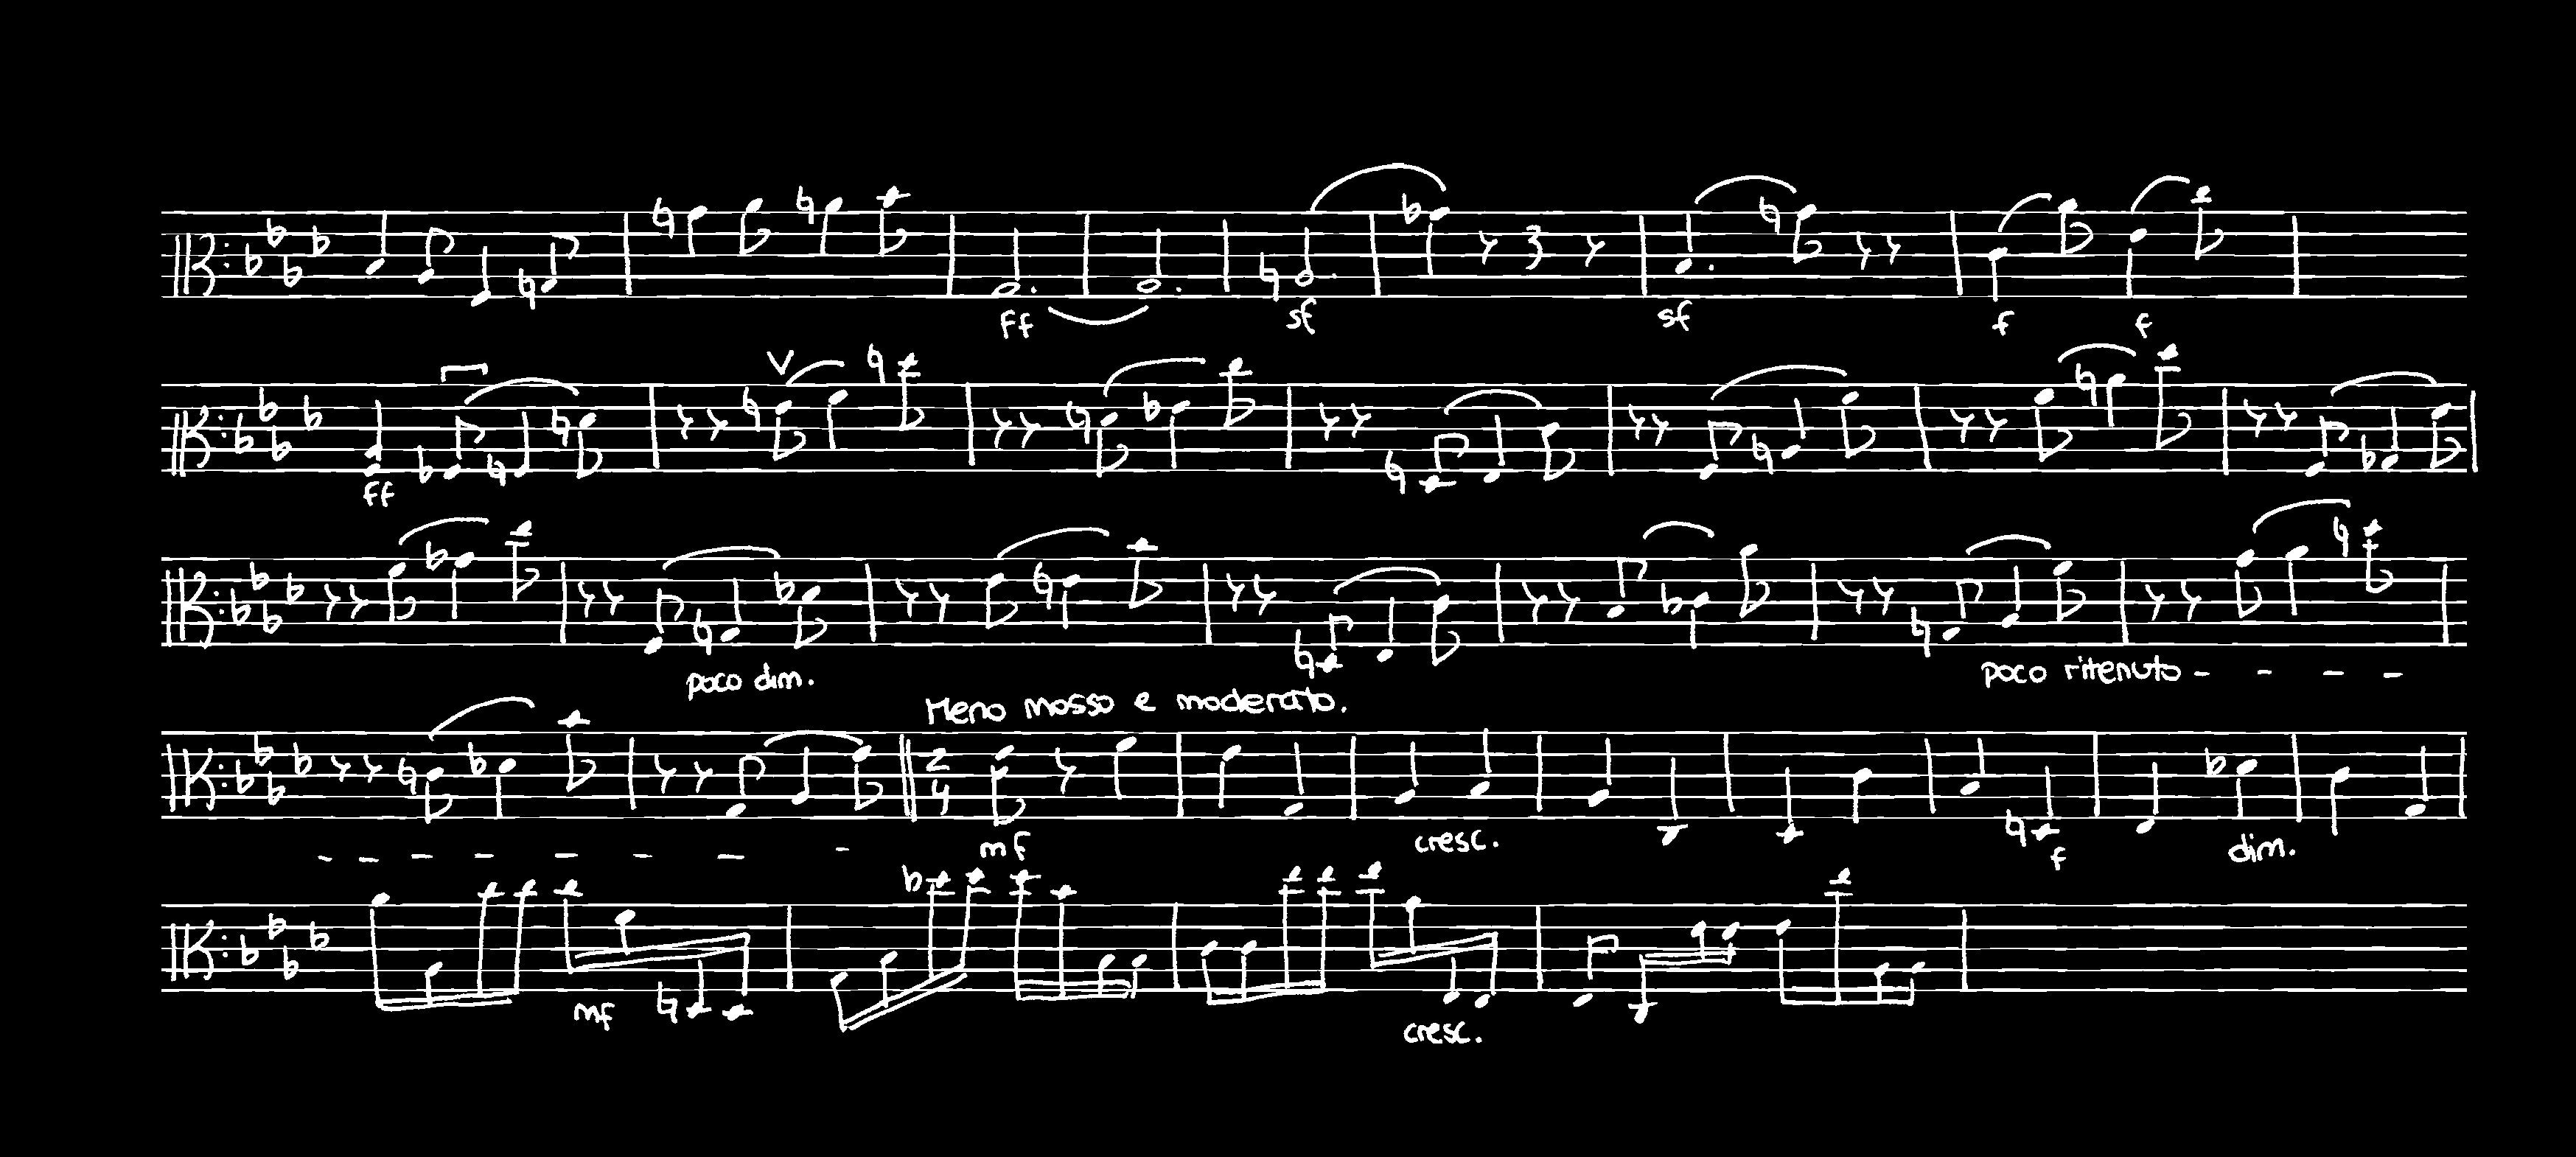 ff sf sf f f
ff
poco dim. poco ritenuto - - - -
Meno mosso e moderato.
- - - - - - - -
2
4
mf cresc. f dim.
mf cresc.